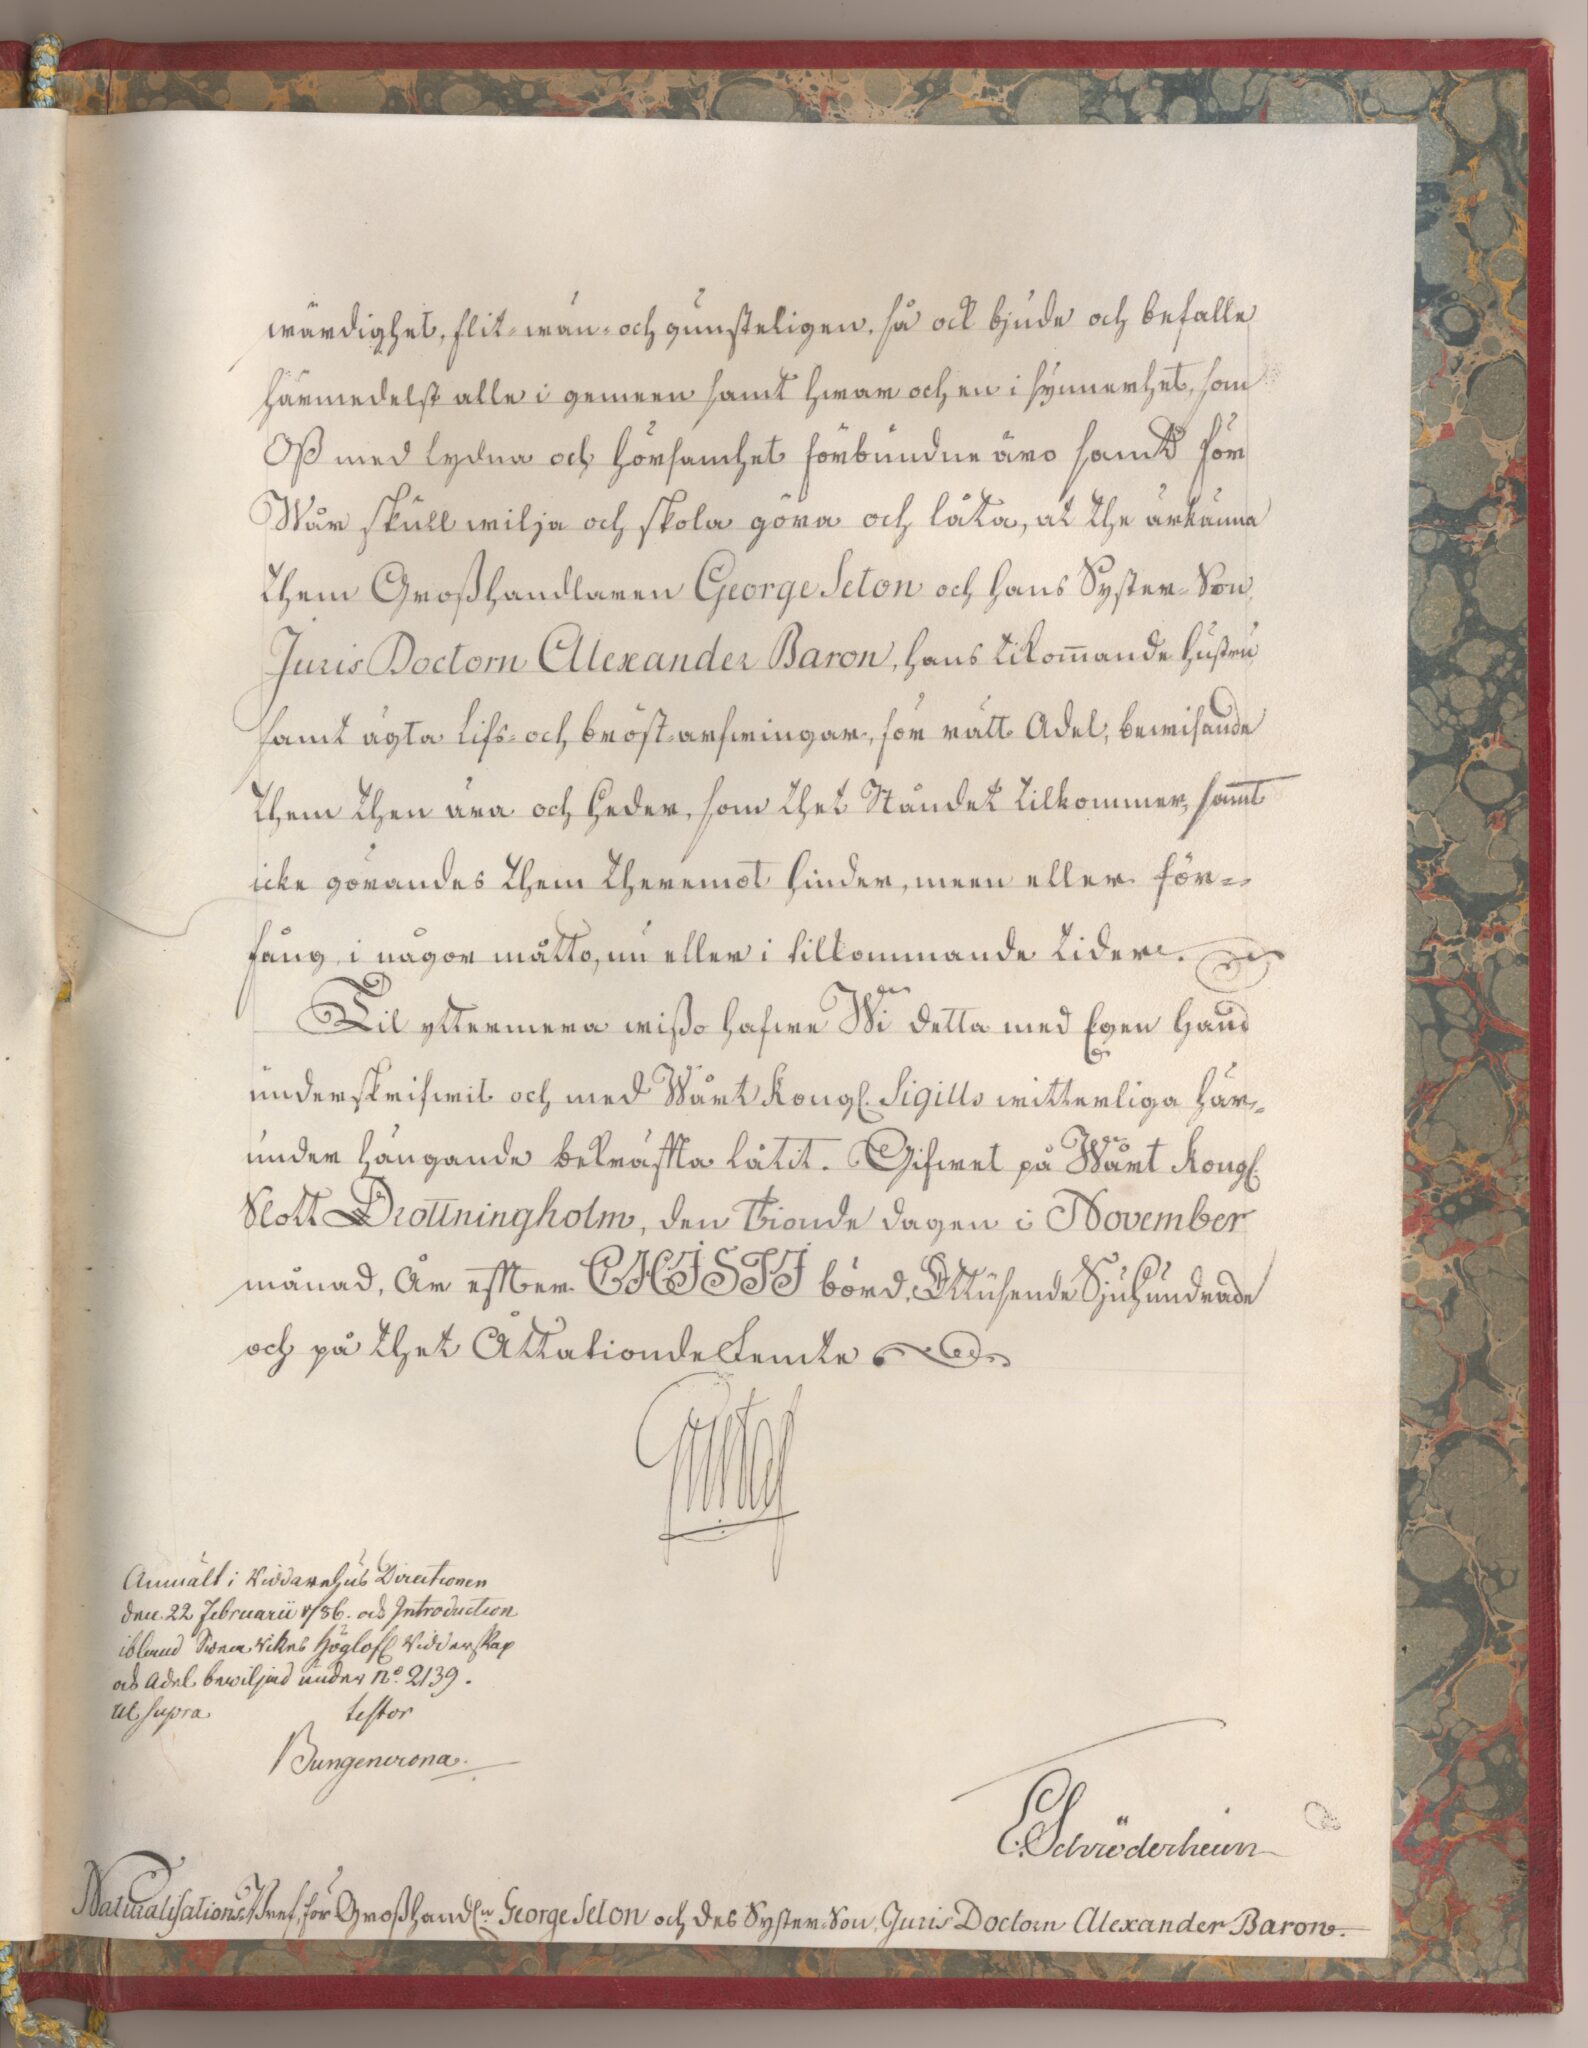 wärdighet, flit- wän- och gunsteligen, så ock bjude och befalle
härmedelst alle i gemeen samt hwar och en i synnerhet, som
Oß med lydna och hörsamhet förbundne äro samt för
Wår skull wilja och skola göra och låta, at the ärkänna
them Großhandlaren George Seton och hans Syster-Son,
Juris Doctorn Alexander Baron, hans tilkommande hustru
samt ägta lifs- och bröst-arfwingar, för rätt Adel, bewisande
them then ära och heder, som thet Ståndet tilkommer, samt
icke görandes them theremot hinder, meen eller för-
fång i någor måtto, nu eller i tilkommande tider.
Til yttermera wißo hafwe Wi detta med Egen Hand
underskrifwit och med Wårt Kongl. Sigills witterliga här-
under hängande bekräffta låtit. Gifwet på Wårt Kongl.
Slott Drottningholm, den Tionde dagen i November
månad, År effter CHISTI börd, Ettusende Sjuhundrade
och på thet Åttationde Femte
Gustaf
Anmält i Riddarehus Directionen
den 22 Februarii 1786. och Introduction
ibland Swea Rikes Höglofl. Ridderskap
och Adel bewiljad under No. 2139.
Ut supra testor
Bungencrona.
E. Schröderheim
Naturalisations Bref, för Großhandln. George Seton och des Syster-Son, Juris Doctorn Alexander Baron.